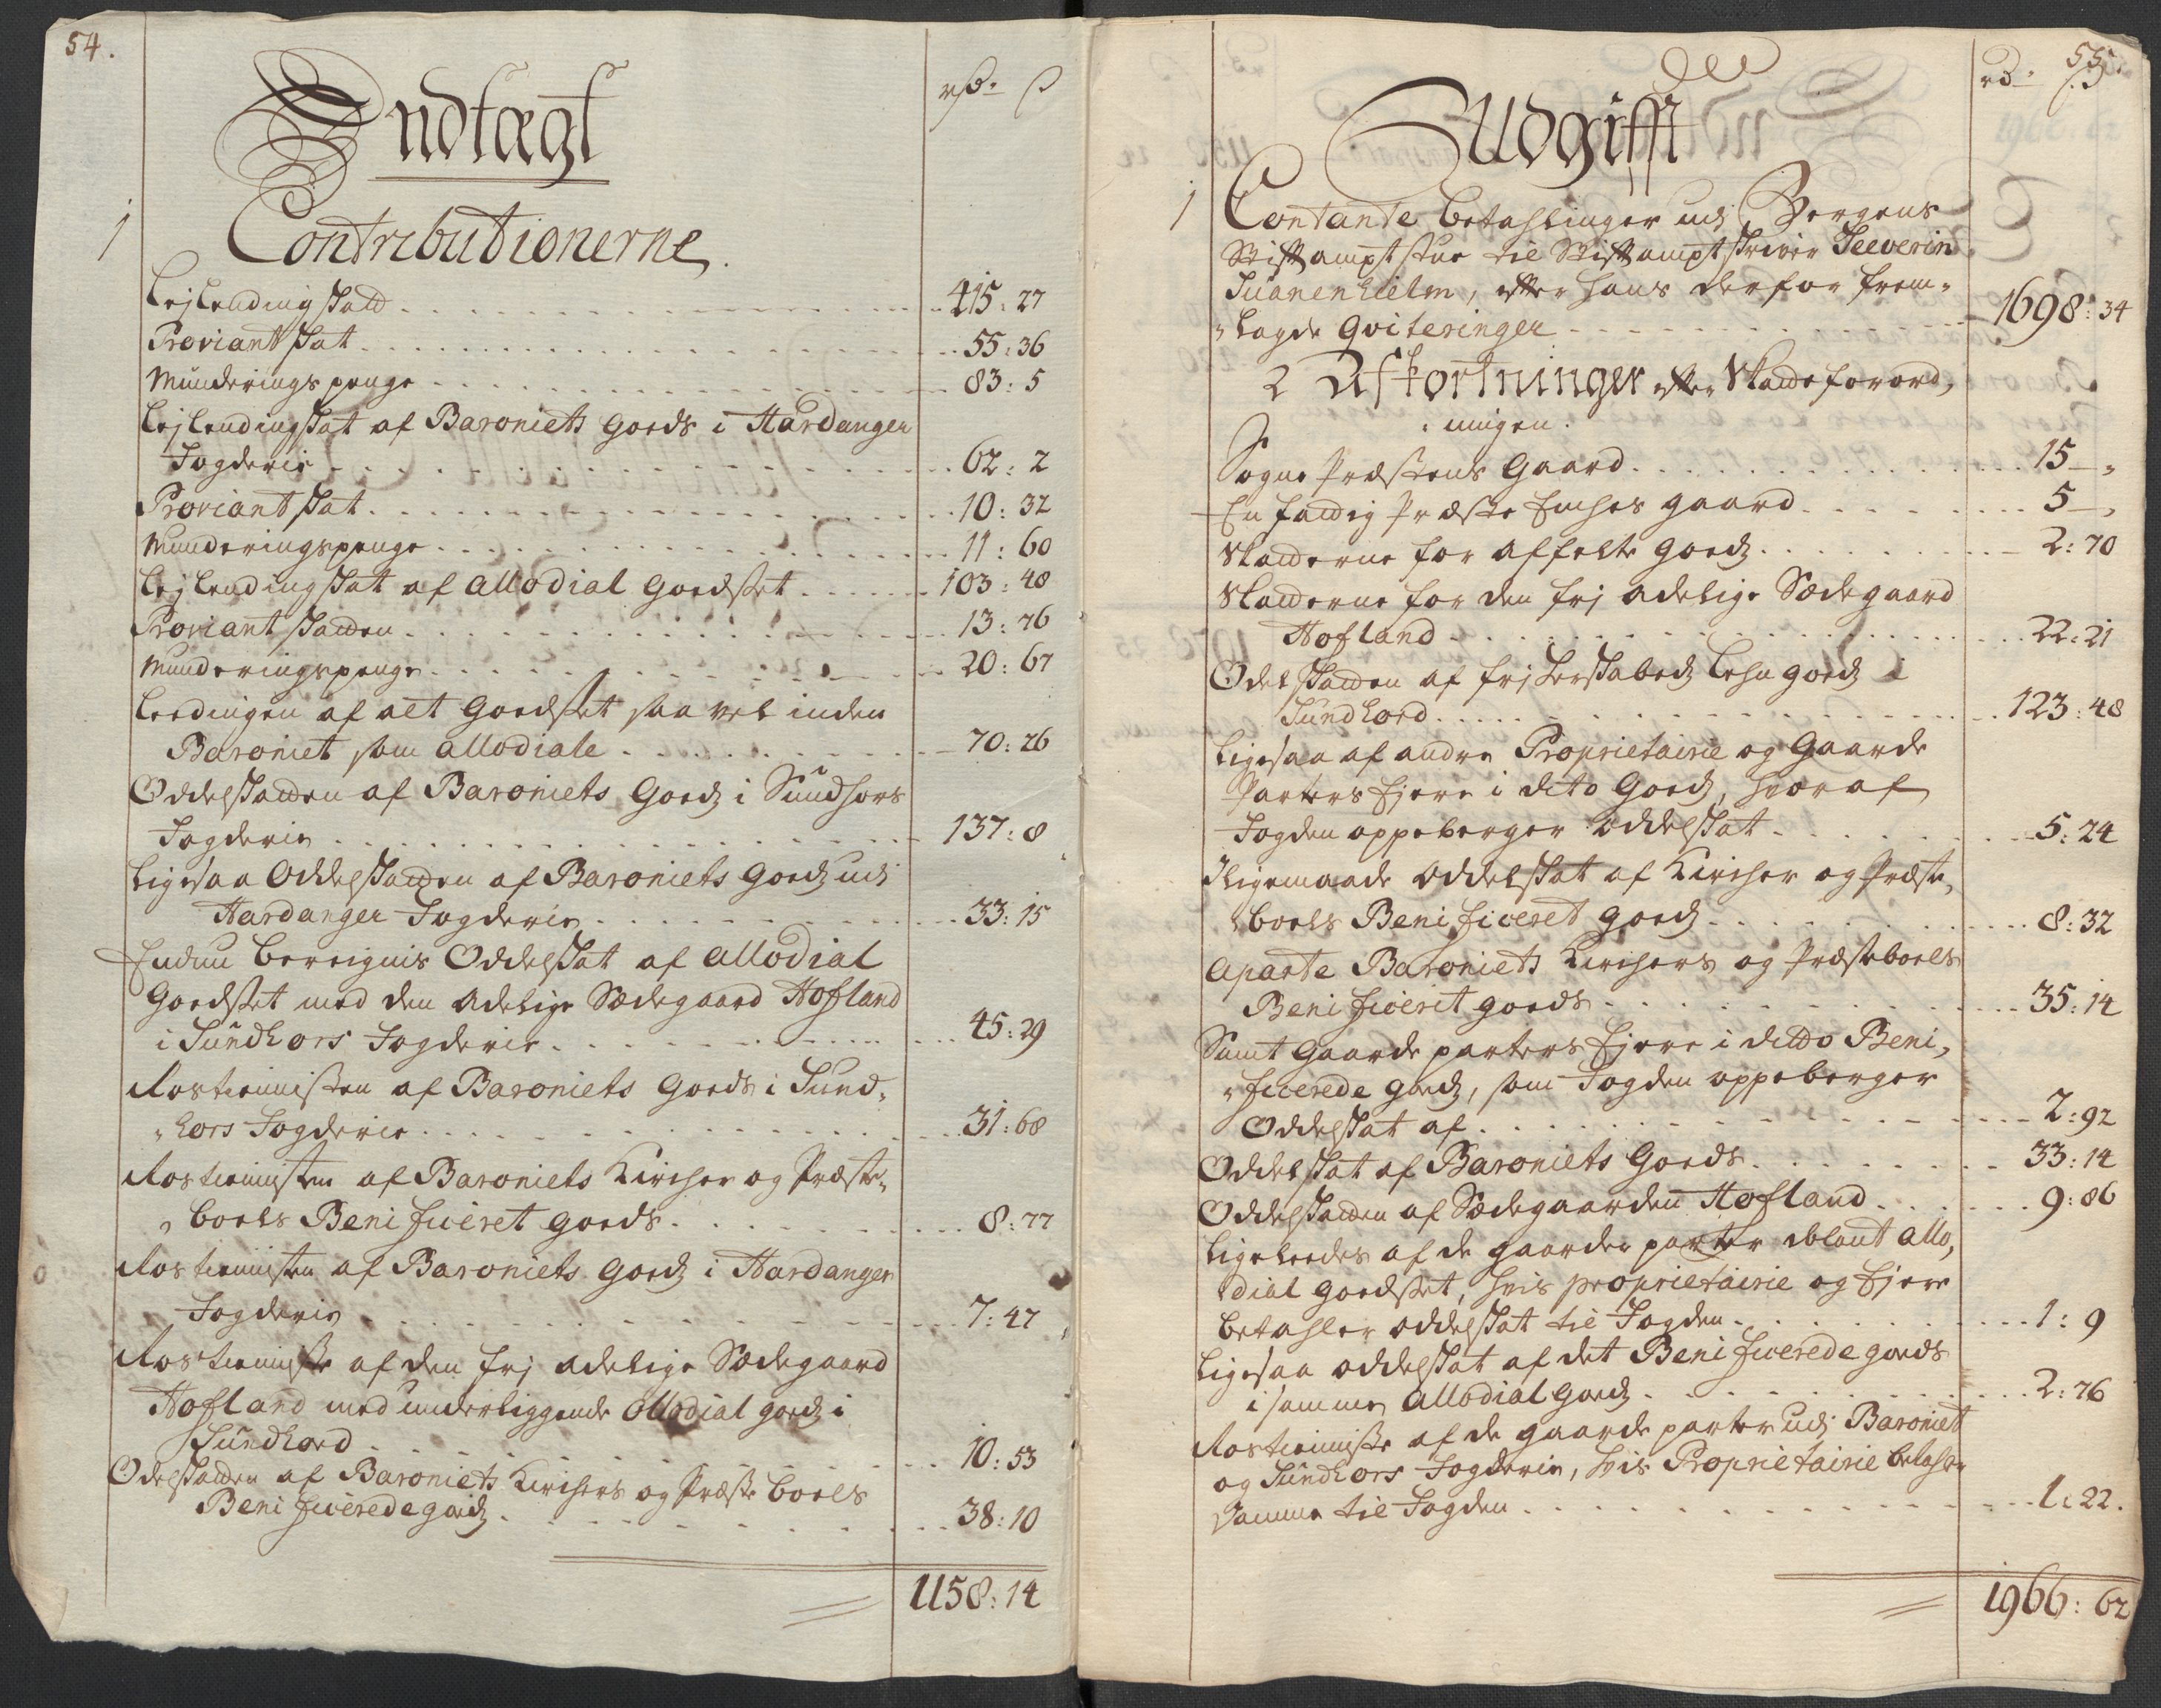 54.
rdr. s
Indtægt
1 Contributionerne
Lejlending skatt 415: 27
Proviant skat 55: 36
Munderings penge 83: 5
Lejlendingskat af Baroniets Goeds i Hardanger
Fogderie 62: 2
Proviant skat 10: 32
Munderingspenge 11: 60
Lejlending skat af allodial Goedset 103: 48
Proviant skatten 13: 76
Munderingspenge 20: 67
Leedingen af alt Goedset saa vel inden
Baroniet som allodiale 70: 26
Oddelskatten af Baroniets Goeds i Sundhors
Fogderie 137: 8
Ligesaa Oddelskatten af Baroniets Goeds udj
Hardanger Fogderie 33: 15
Endnu beregnis Oddelskat af allodial
Goedset med den adelige Sædegaard Hofland
i Sundhors Fogderie 45: 29
Rostienisten af Baroniets Goeds i Sund-
hors Fogderie 31: 68
Rostienisten af Baroniets Kircher og Præste-
boels Beneficeret goeds 8: 77
Rostienisten af Baroniets Goeds i Hardanger
Fogderie 7: 47
Rostieniste af den frj adelige Sædegaard
Hofland med underliggende allodial goeds i
Sundhord 10: 53
Odelskatten af Baroniets Kirchers og Præste boels
Beneficerede goeds 38: 10
1158: 14
55.
rdr. s
Udgifft
1 Contante betahlinger udj Bergens
Stiftamptstue til Stiftamptskriver Seeverin
Suanenhielm, efter hans derfor frem-
lagde Qviteringer 1698: 34
2 Afkortninger efter Skatteforord-
ningen.
Sogne Præstens Gaard 15 -
En fattig Præste Enches gaard 5 -
Skatterne for affelte Goeds 2: 70
Skatterne for den frj adelige Sædegaard
Hofland 22: 21
Odelskatten af frj herskabeds Lehn goeds i
Sundhord 123: 48
Ligesaa af andre Proprietairie og Gaarde
Parters Ejere i dito Goeds, hvoraf
Fogden oppeberger oddelskat 5: 24
Iligemaade oddelskat af Kircher og Præste-
boels Beneficeret goeds 8: 32
Aparte Baroniets Kirchers og Præsteboels
Beneficeret goeds 35: 14
Samt Gaarde parters Ejere i ditto Bene-
ficerede goeds, som Fogden oppeberger
Oddelskat af 2: 92
Oddelskat af Baroniets Goeds 33: 14
Oddelskatten af Sædegaarden Hofland 9: 86
Ligeledes af de gaarder parter iblant allo-
dial goedset, hvis proprietairie og Ejere
betahler oddelskat til Fogden 1: 9
Ligesaa oddelskat af det Beneficerede goeds
i samme allodial goeds 2: 76
Rostieniste af de gaarde parter udj Baroniet
og Sundhors Fogderie, hvis Proprietairie betahler
samme til Fogden 1: 22.
1966: 62